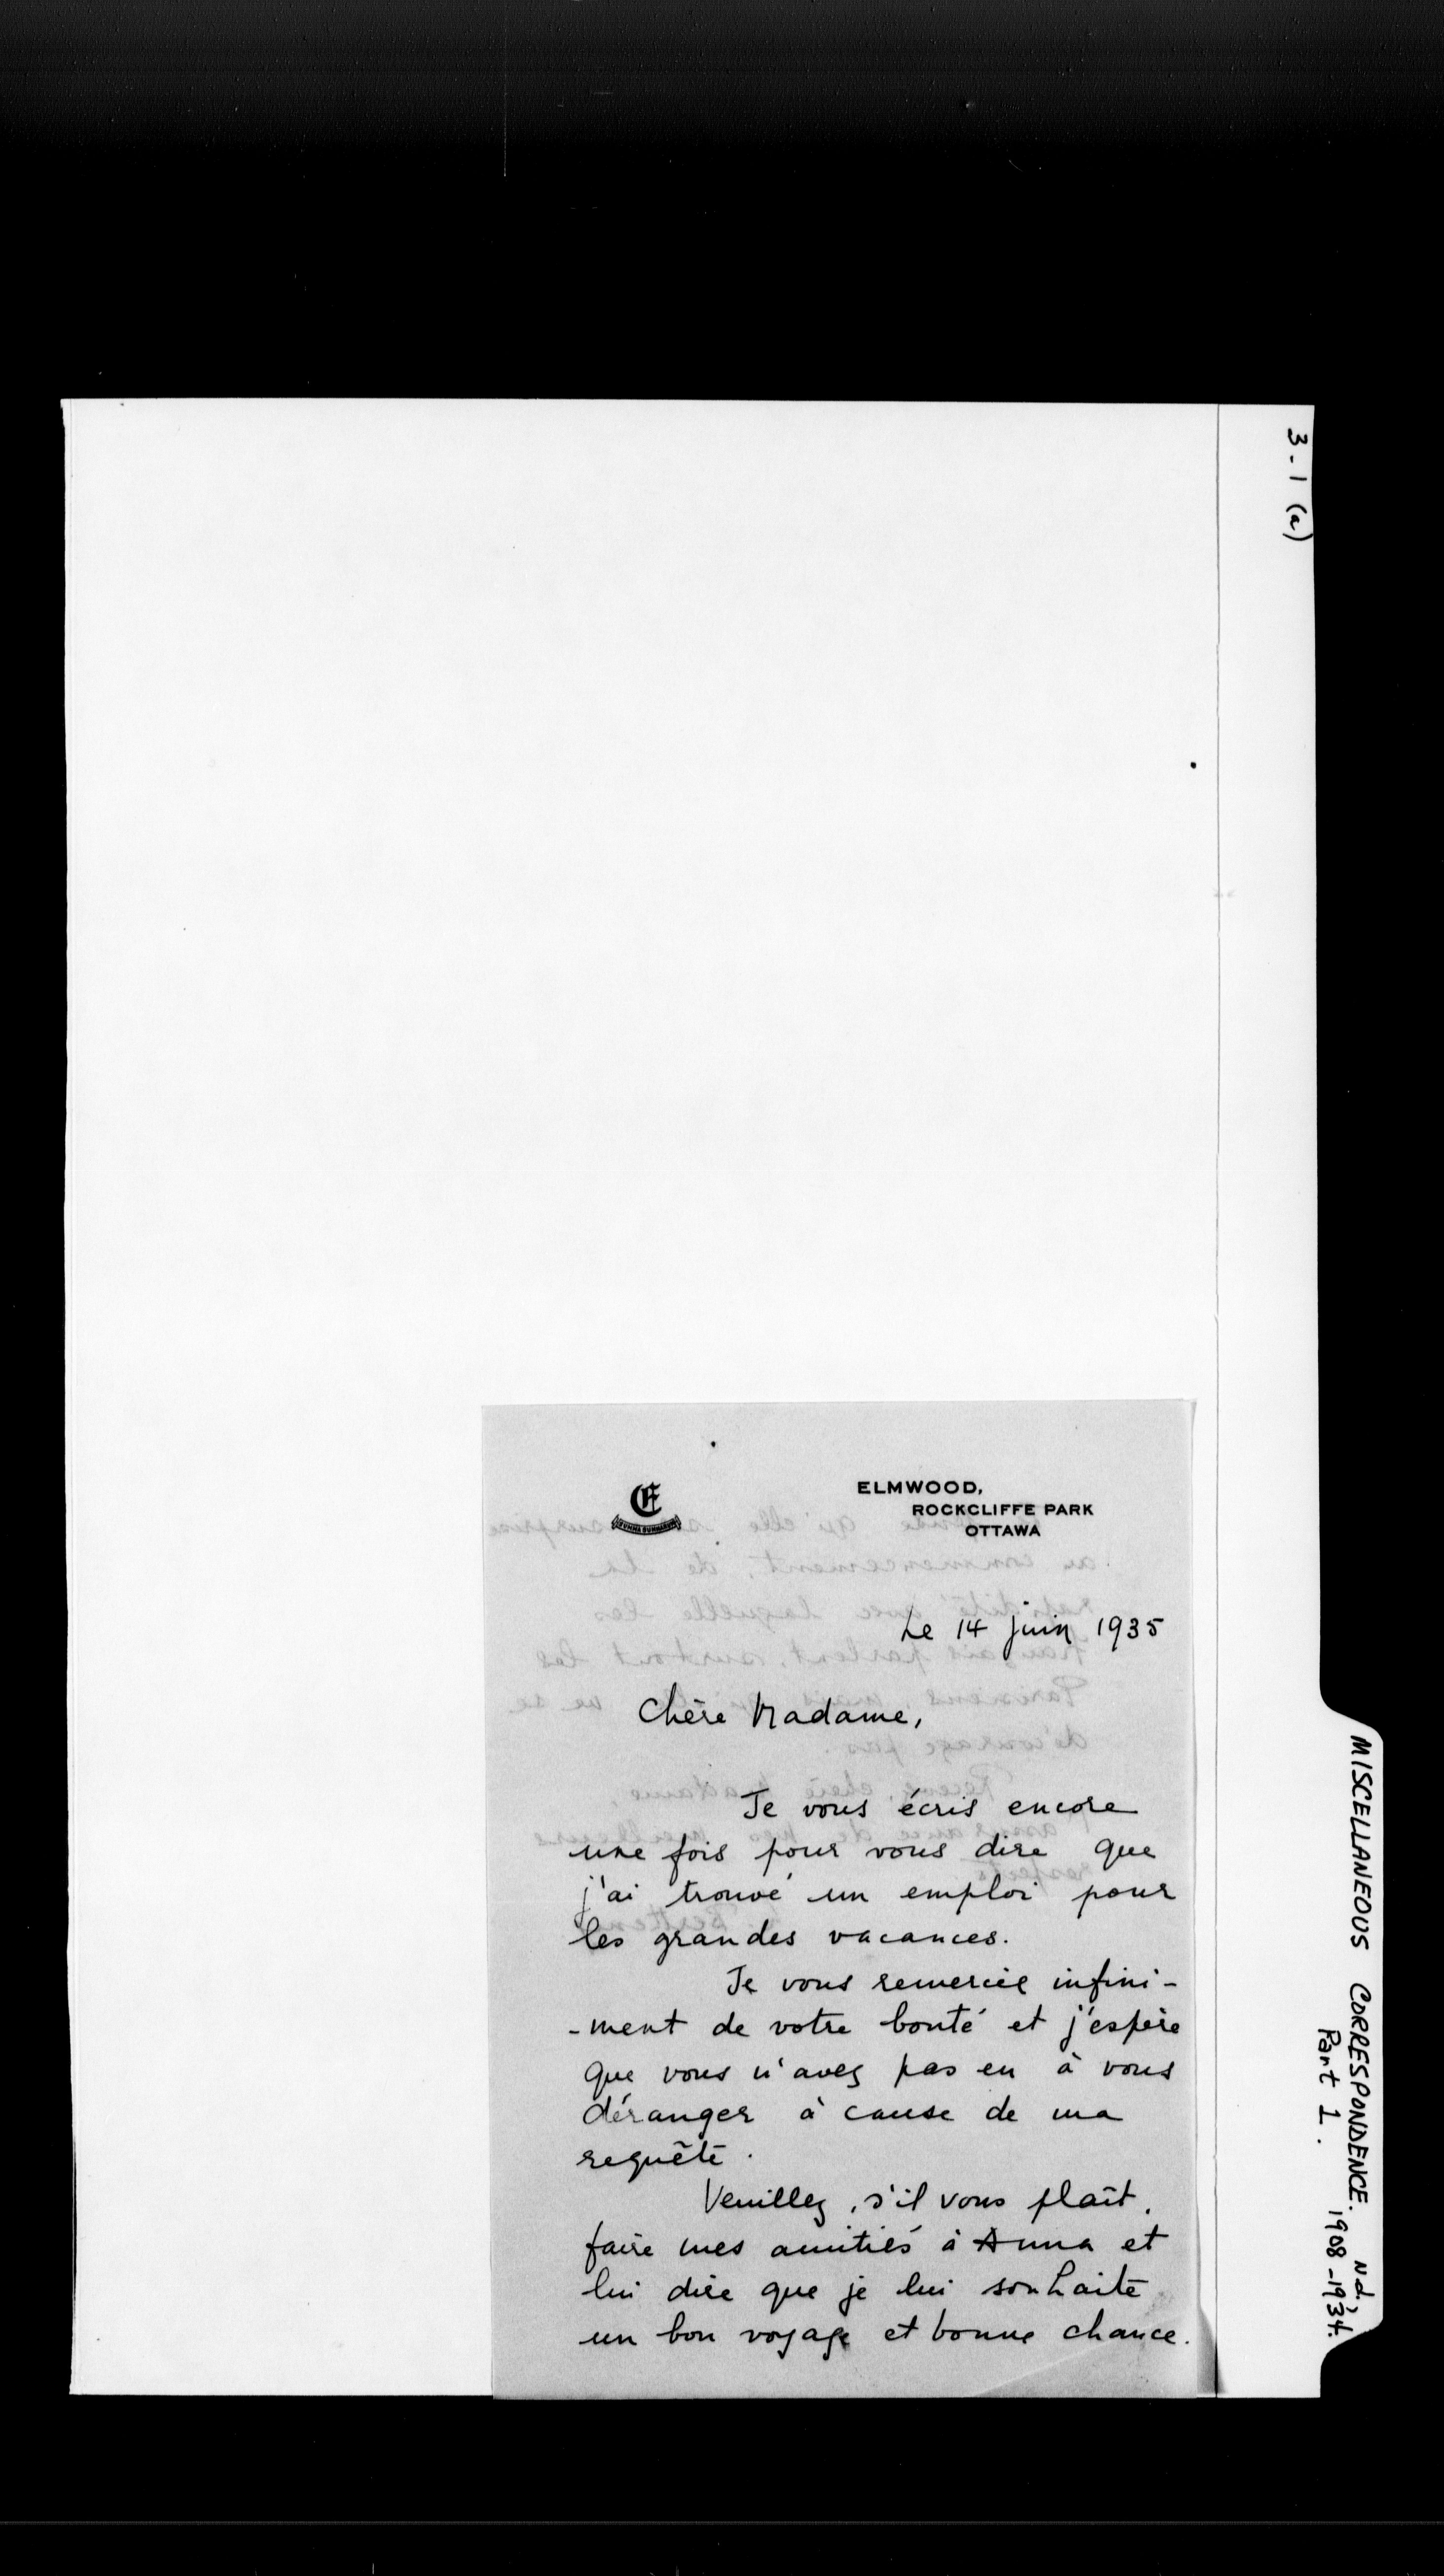 3-1 (a)
MISCELLANEOUS CORRESPONDENCE. n.d.,
Part 1. 1908-1934.
E
SUMMA SUMMARUM
ELMWOOD,
ROCKCLIFFE PARK
OTTAWA
Le 14 juin 1935
Chère Madame,
Je vous écris encore
une fois pour vous dire que
j'ai trouvé un emploi pour
les grandes vacances.
Je vous remercie infini-
-ment de votre bonté et j'espère
que vous n'avez pas eu à vous
déranger à cause de ma
requête.
Veuillez, s'il vous plaît,
faire mes amitiés à Anna et
lui dire que je lui souhaite
un bon voyage et bonne chance.